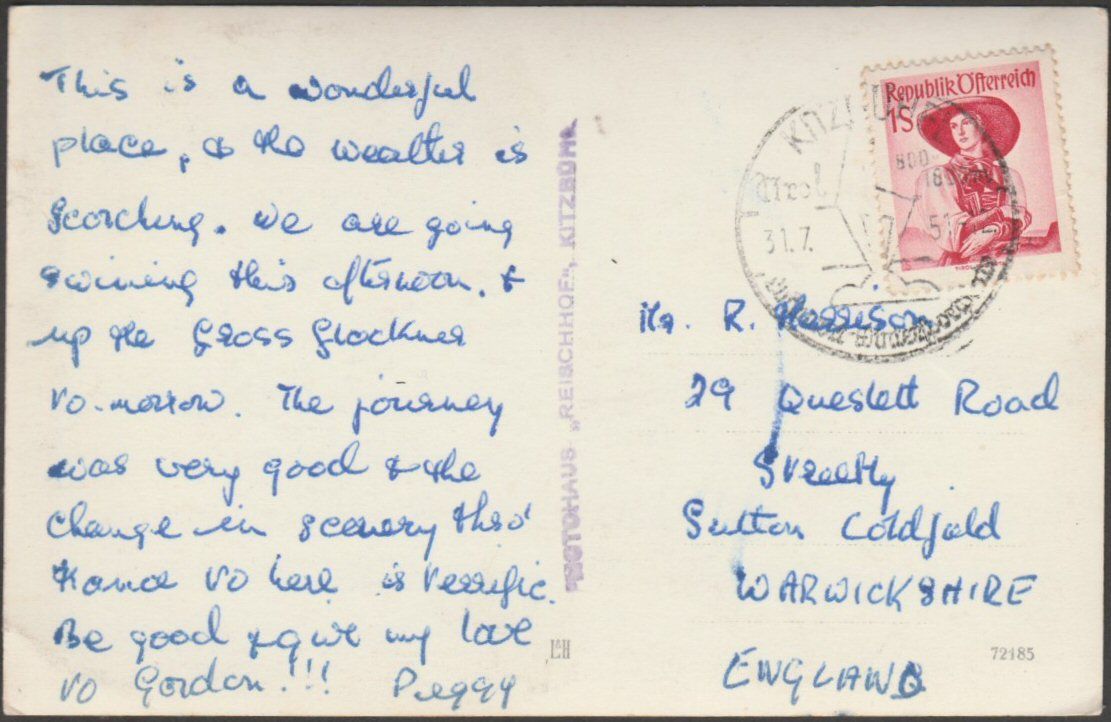 This is a wonderful
place, & the weather is
scorching. We are going
swiming this afternoon, &
up the Gross Glockner
to-morrow. The journey
was very good & the
change in scenery thro'
France to here is terrific.
Be good & give my love
to Gordon!!! Peggy
PHOTOHAUS „REISCHHOF", KITZBÜHEL
L&H
Republik Österreich
1S
TIROL
KITZBÜHEL
Tirol
800
31.7.
51
Mr. R. Harrison
29 Queslett Road
Streetly
Sutton Coldfield
WARWICKSHIRE
ENGLAND
72185